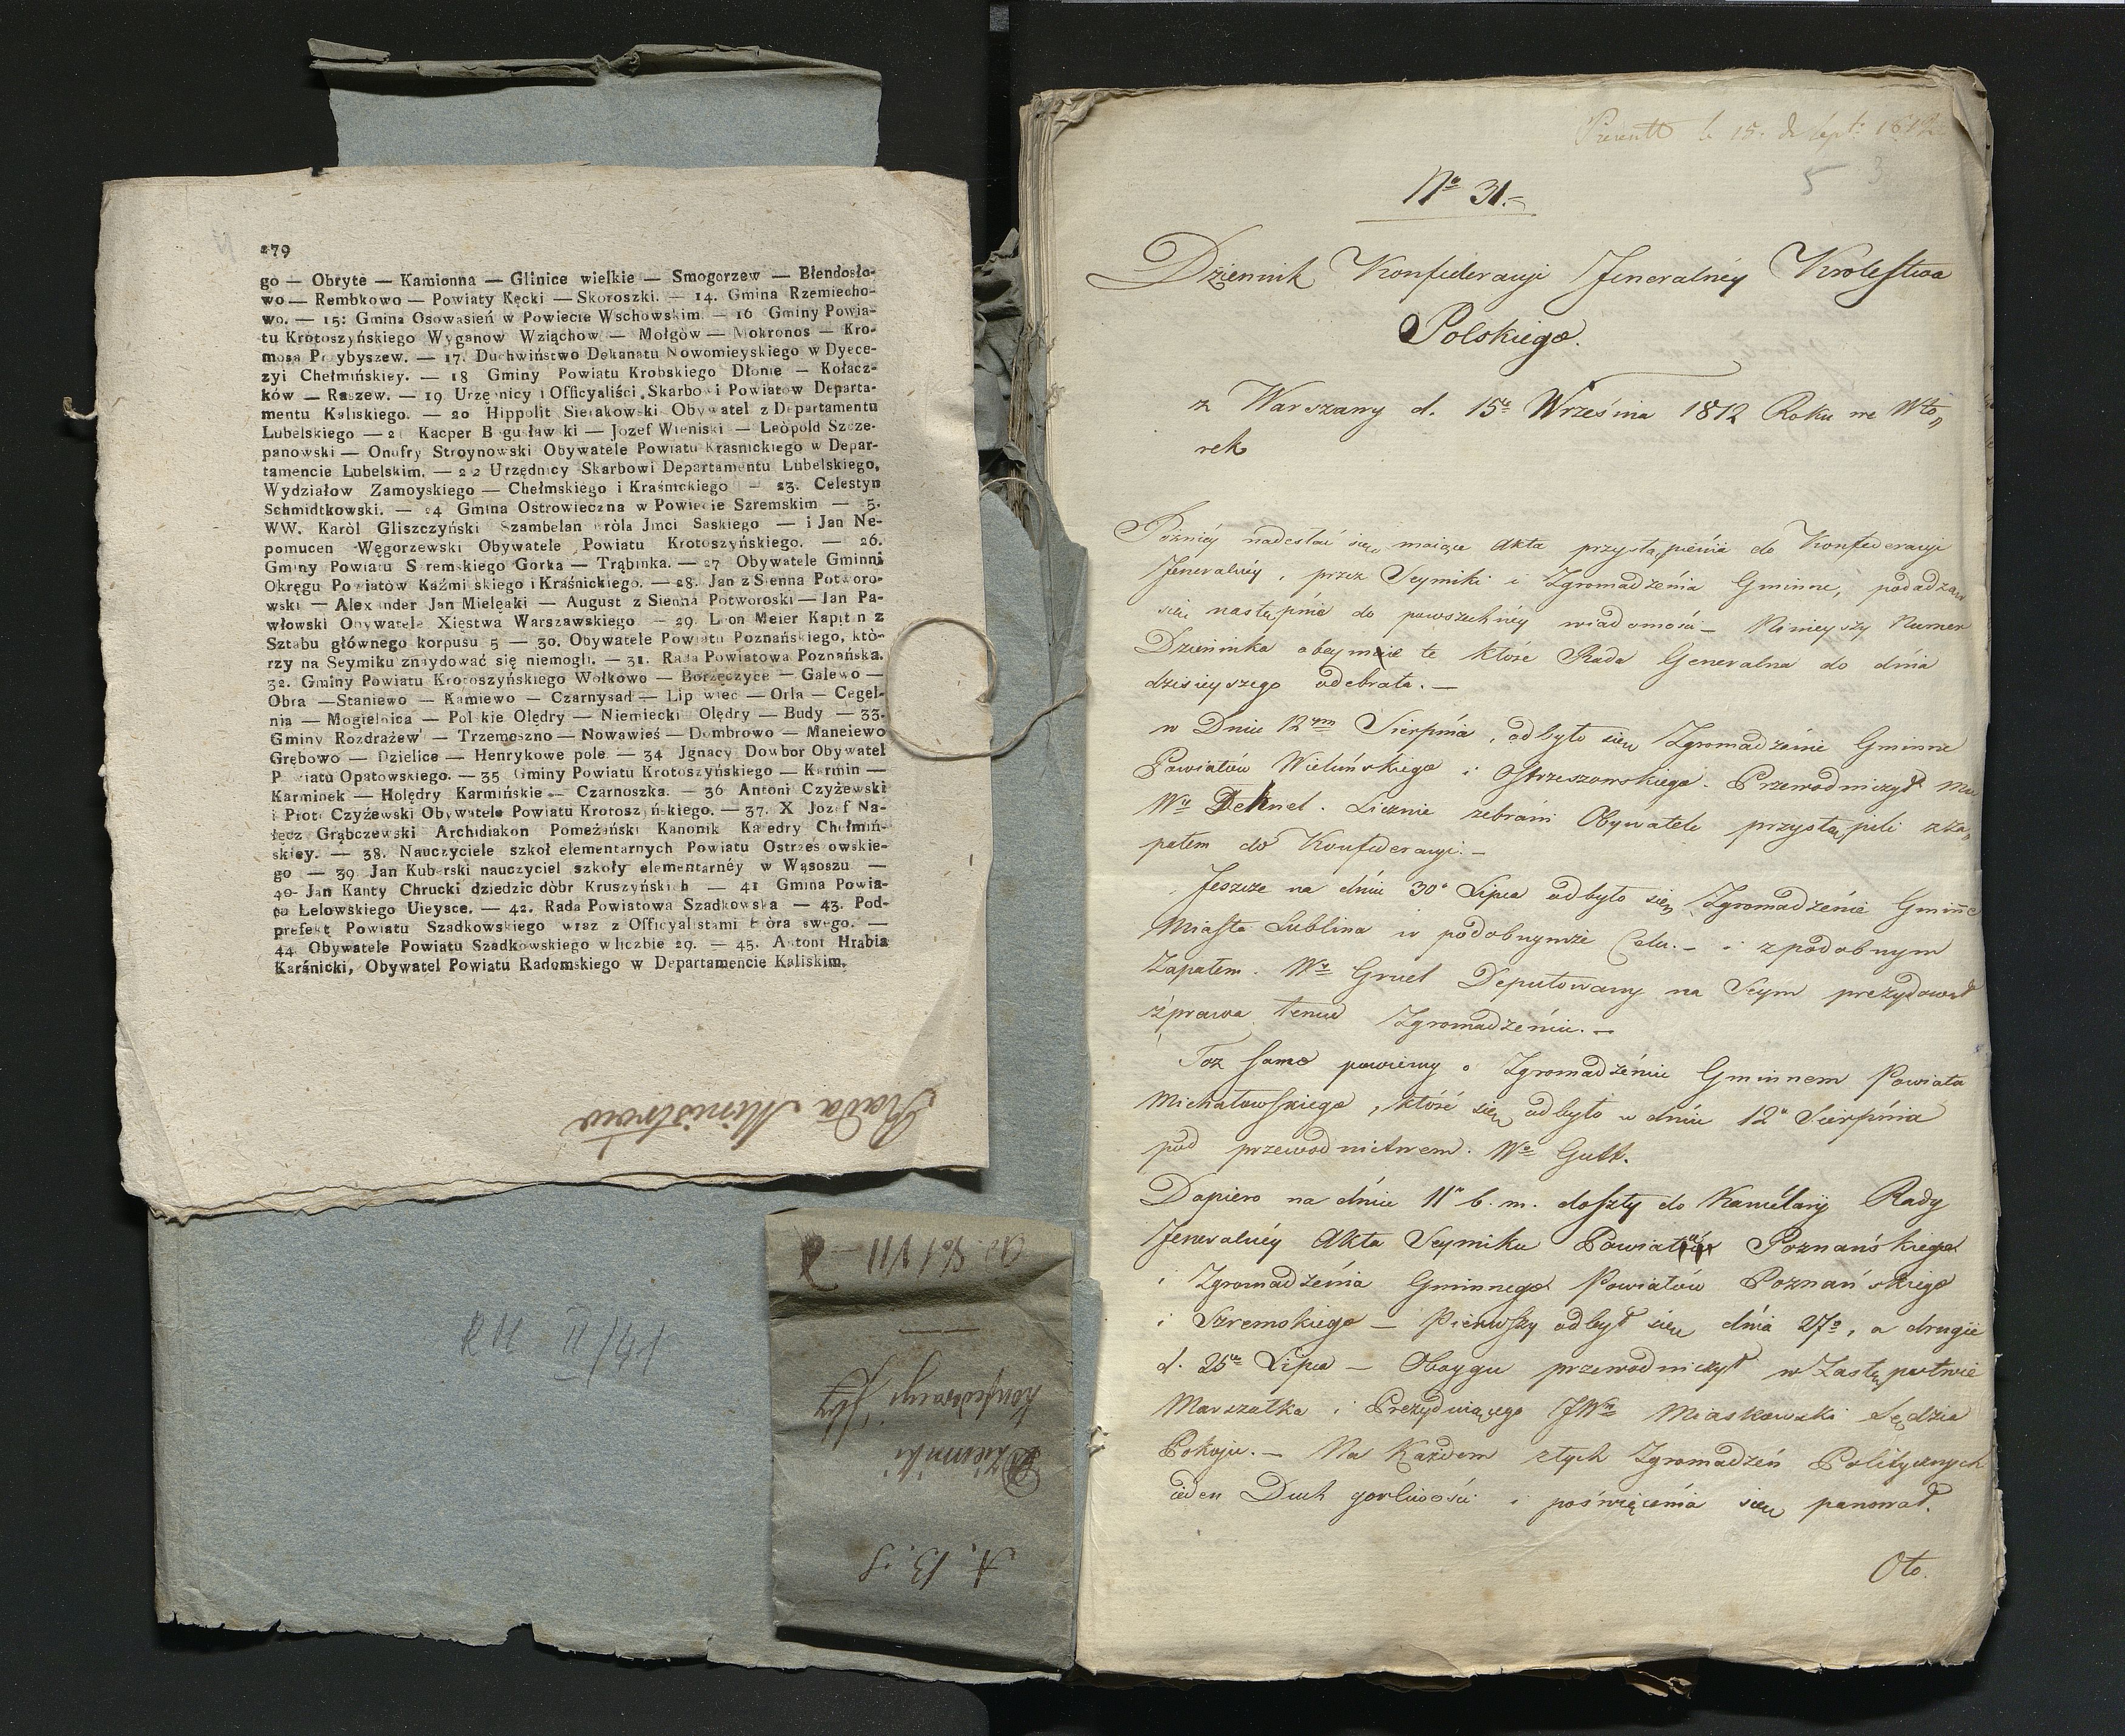 279
go — Obryte — Kamionna — Glinice wielkie — Smogorzew — Błendosło-
wo — Rembkowo — Powiaty Kęcki — Skoroszki. — 14. Gmina Rzemiecho-
wo. — 15: Gmina Osowasień w Powiecie Wschowskim — 16 Gminy Powia-
tu Krotoszyńskiego Wyganow Wziąchow — Mołgòw — Mokronos — Kro-
mosa Przybyszew. — 17. Duchwiństwo Dekanatu Nowomieyskiego w Dyece-
zyi Chełmińskiey. — 18 Gminy Powiatu Krobskiego Dłonie — Kołacz-
ków — Raszew. — 19 Urzędnicy i Officyaliści Skarbowi Powiatow Departa-
mentu Kaliskiego. — 20 Hippolit Sierakowski Obywatel z Departamentu
Lubelskiego — 21 Kacper Bogusławski — Jozef Wieniski — Leòpold Szcze-
panowski — Onufry Stroynowski Obywatele Powiatu Krasnickiego w Depar-
tamencie Lubelskim. — 22 Urzędnicy Skarbowi Departamentu Lubelskiego,
Wydziałow Zamoyskiego — Chełmskiego i Kraśnickiego — 23. Celestyn
Schmidtkowski. — 24 Gmina Ostrowieczna w Powiecie Szremskim — 25.
WW. Karòl Gliszczyński Szambelan Kròla Jmci Saskiego — i Jan Ne-
pomucen Węgorzewski Obywatele Powiatu Krotoszyńskiego. — 26.
Gminy Powiatu Szremskiego Gorka — Trąbinka. — 27 Obywatele Gminni
Okręgu Powiatòw Kaźmirskiego i Kraśnickiego. — 28. Jan z Sienna Potworo-
wski — Alexander Jan Mielęaki — August z Sienna Potworoski — Jan Pa-
włowski Obywatele Xięstwa Warszawskiego — 29. Leon Meier Kapitan z
Sztabu głównego korpusu 5 — 30. Obywatele Powiatu Poznańskiego, któ-
rzy na Seymiku znaydować się niemogli. — 31. Rada Powiatowa Poznańska.
32. Gminy Powiatu Krotoszyńskiego Wolkowo — Borzęczyce — Galewo —
Obra — Staniewo — Kamiewo — Czarnysad — Lipowiec — Orla — Cegel-
nia — Mogielnica — Polskie Olędry — Niemieckie Olędry — Budy — 33.
Gminy Rozdrażew — Trzemeszno — Nowawieś — Dombrowo — Maneiewo
Grębowo — Dzielice — Henrykowe pole — 34 Jgnacy Dowbor Obywatel
Powiatu Opatowskiego. — 35 Gminy Powiatu Krotoszyńskiego — Karmin —
Karminek — Holędry Karmińskie — Czarnoszka. — 36 Antoni Czyżewski
i Piotr Czyżewski Obywatele Powiatu Krotoszyńskiego. — 37. X Jozef Na-
łęcz Grąbczewski Archidiakon Pomeżański Kanonik Katedry Chełmiń-
skiey. — 38. Nauczyciele szkoł elementarnych Powiatu Ostrzeszowskie-
go — 39 Jan Kubarski nauczyciel szkoły elementarnéy w Wąsoszu —
40- Jan Kanty Chrucki dziedzic dòbr Kruszyńskich — 41 Gmina Powia-
tu Lelowskiego Uieysce. — 42. Rada Powiatowa Szadkowska — 43. Pod-
prefekt Powiatu Szadkowskiego wraz z Officyalistami bióra swego. —
44. Obywatele Powiatu Szadkowskiego w liczbie 29. — 45. Antoni Hrabia
Karśnicki, Obywatel Powiatu Radomskiego w Departamencie Kaliskim.
Rada Ministrow
RM II/41
A. B. S
Dzienniki
Konfederacyi
Presenté le 15. de Sept: 1812
5
Nº 31.-
Dziennik Konfederacyi Jeneralnéy Królestwa
Polskiego.
z Warszawy d. 15º Września 1812 Roku we Wto„
rek
Późniéy nadesłać się maiące Akta przystąpienia do Konfederacyi
Jeneralnéy, przez Seymiki i Zgromadzenia Gminne, podadzą
się następnie do powszechnéy wiadomości — Ninieyszy Numer
Dziennika obeymie te które Rada Generalna do dnia
dzisieyszego odebrała. —
w Dniu 12ym Sierpnia, odbyło się Zgromadzenie Gminne
Powiatów Wieluńskiego i Ostrzeszowskiego. Przewodniczył mu
Wy Deknel. Licznie zebrani Obywatele przystąpili z za„
pałem do Konfederacyi. —
Jeszcze na dniu 30º Lipca odbyło się Zgromadzenie Gminne
Miasta Lublina w podobnymże Celu. — i z podobnym
Zapałem. Wy Gruel Deputowany na Seym prezydował
z prawa temu Zgromadzeniu. —
Toż samo powiemy o Zgromadzeniu Gminnem Powiatu
Michałowskiego, które się odbyło w dniu 12º Sierpnia
pod przewodnictwem Wº Gutt.
Dopiero na dniu 11º b. m. doszły do Kancelaryi Rady
Jeneralnéy Akta Seymiku Powiatu Poznańskiego
i Zgromadzenia Gminnego Powiatów Poznańskiego
i Szremskiego — Pierwszy odbył się dnia 27º, a drugie
d. 25º Lipca — Oboygu przewodniczył w Zastępstwie
Marszałka i Prezyduiącego JWy Miaskowski Sędzia
Pokoju. — Na Każdem z tych Zgromadzeń Politycznych
ieden Duch gorliwości i poświęcenia się panował.
Oto.